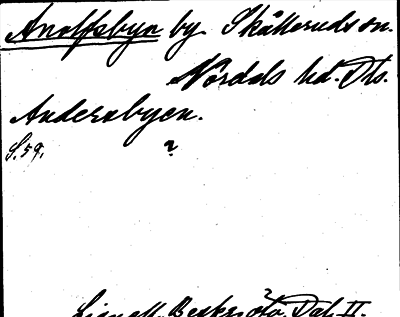 Anolfsbyn by. Skålleruds sn.
Nordals hd. Dls.
Andersbyen.
S. 59. ?
Lignell, Beskr. öfv. Dal II.